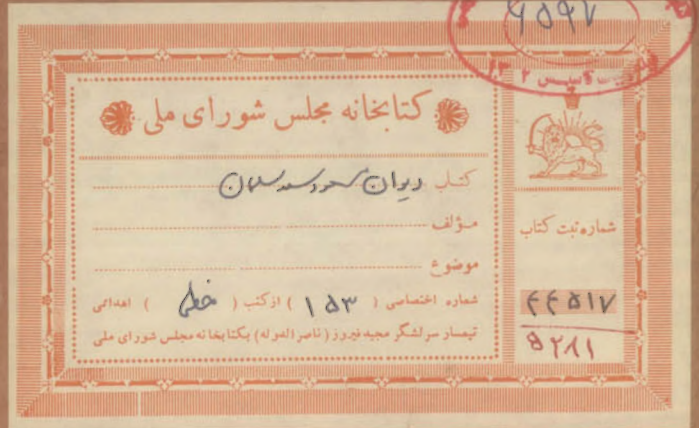 ۴۵۹۷
تاسیس ۱۳۰۲
کتابخانه مجلس شورای ملی
کتاب دیوان مسعود سعد سلمان
مؤلف
موضوع
شماره اختصاصی ( ۱۵۳ ) از کتب ( خطی ) اهدائی
تیمسار سرلشگر مجید فیروز (ناصرالدوله) بکتابخانه مجلس شورای ملی
شماره ثبت کتاب
۴۴۵۱۷
۵۲۸۱